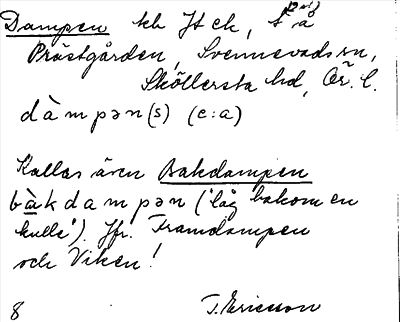 Dampen
Prästgården, Svennevads sn,
Sköllersta hd, Ör. l.
dàmpən(s) (e:a)
Kallas även Bakdampen
bàkdampən ('låg bakom en
kulle'). Jfr. Framdampen
och Viken!
8 T. Ericsson